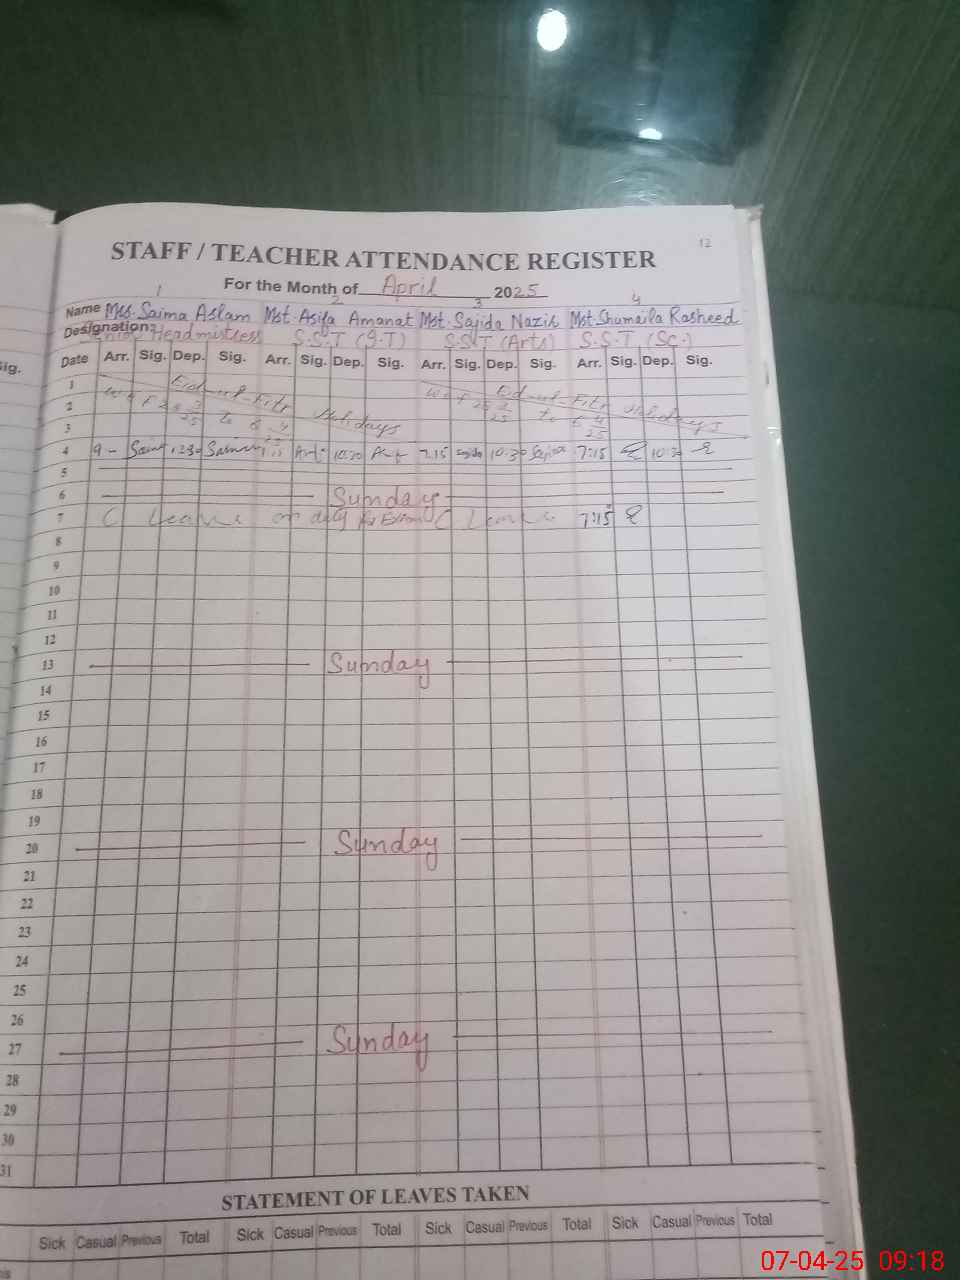 12
STAFF / TEACHER ATTENDANCE REGISTER
For the Month of April 2025
1 2 3 4
Name Mrs. Saima Aslam Mst. Asifa Amanat Mst. Sajida Nazir Mst. Shumaila Rasheed
Designation: Senior Headmistress S.S.T (G.T) S.S.T (Arts) S.S.T (Sc.)
sig.
Date Arr. Sig. Dep. Sig. Arr. Sig. Dep. Sig. Arr. Sig. Dep. Sig. Arr. Sig. Dep. Sig.
1 Eid-ul-Fitr Eid-ul-Fitr
2 Holidays Holidays
3
4 9 - 10:30 7:15 10:30 7:15 10:30
5
6 Sunday
7 C Leave on duty for C Leave 7:15
8
9
10
11
12
13 Sunday
14
15
16
17
18
19
20 Sunday
21
22
23
24
25
26
27 Sunday
28
29
30
31
STATEMENT OF LEAVES TAKEN
Sick Casual Previous Total Sick Casual Previous Total Sick Casual Previous Total Sick Casual Previous Total
07-04-25 09:18